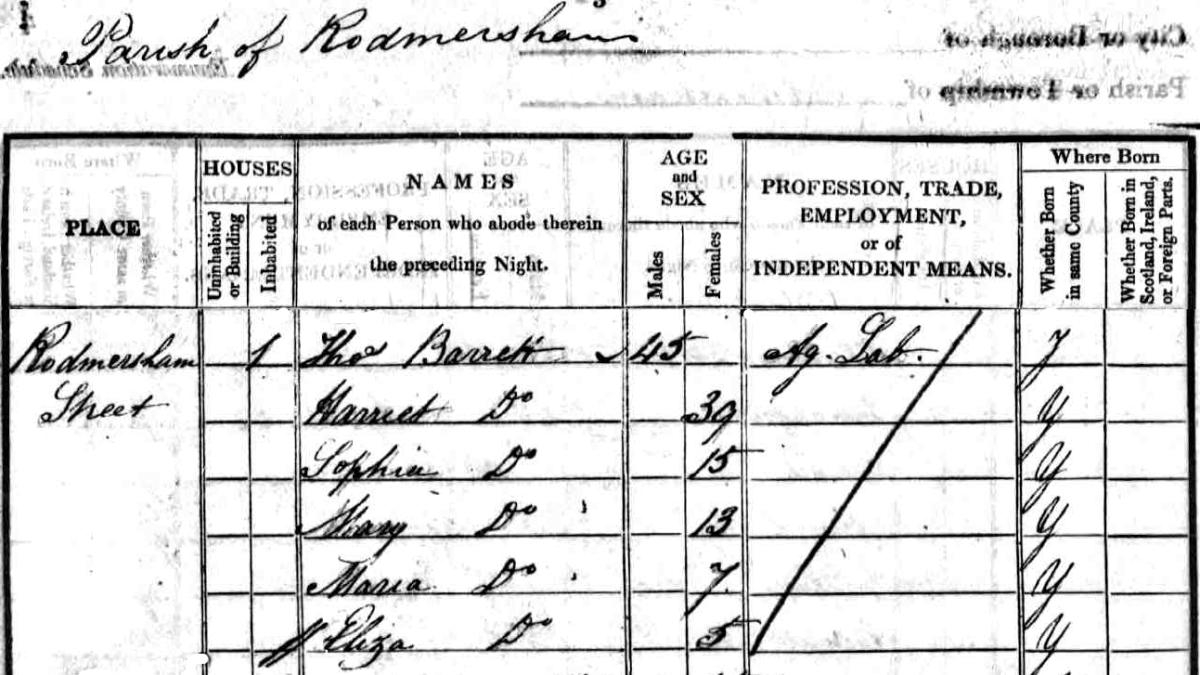 Parish of Rodmersham
City or Borough of
Parish or Township of
Enumeration Schedule.
PLACE
HOUSES
Uninhabited or Building
Inhabited
NAMES
of each Person who abode therein
the preceding Night.
AGE
and
SEX
Males
Females
PROFESSION, TRADE,
EMPLOYMENT,
or of
INDEPENDENT MEANS.
Where Born
Whether Born in same County
Whether Born in Scotland, Ireland, or Foreign Parts.
Rodmersham 1 Thos Barrett 45 Ag. Lab. Y
Street Harriet Do 39 Y
Sophia Do 15 Y
Mary Do 13 Y
Maria Do 7 Y
Eliza Do 5 Y